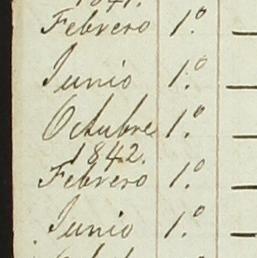 1841.
Febrero 1.º
Junio 1.º
Octubre 1.º
1842.
Febrero 1.º
Junio 1.º